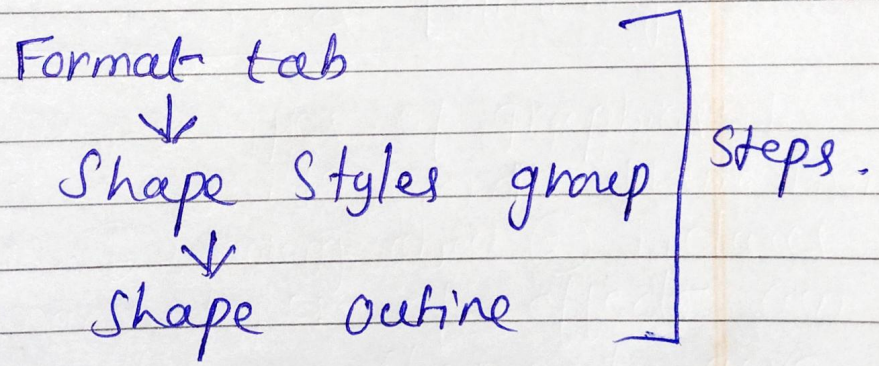 Format tab
↓
Shape Styles group
↓
Shape outine
Steps.